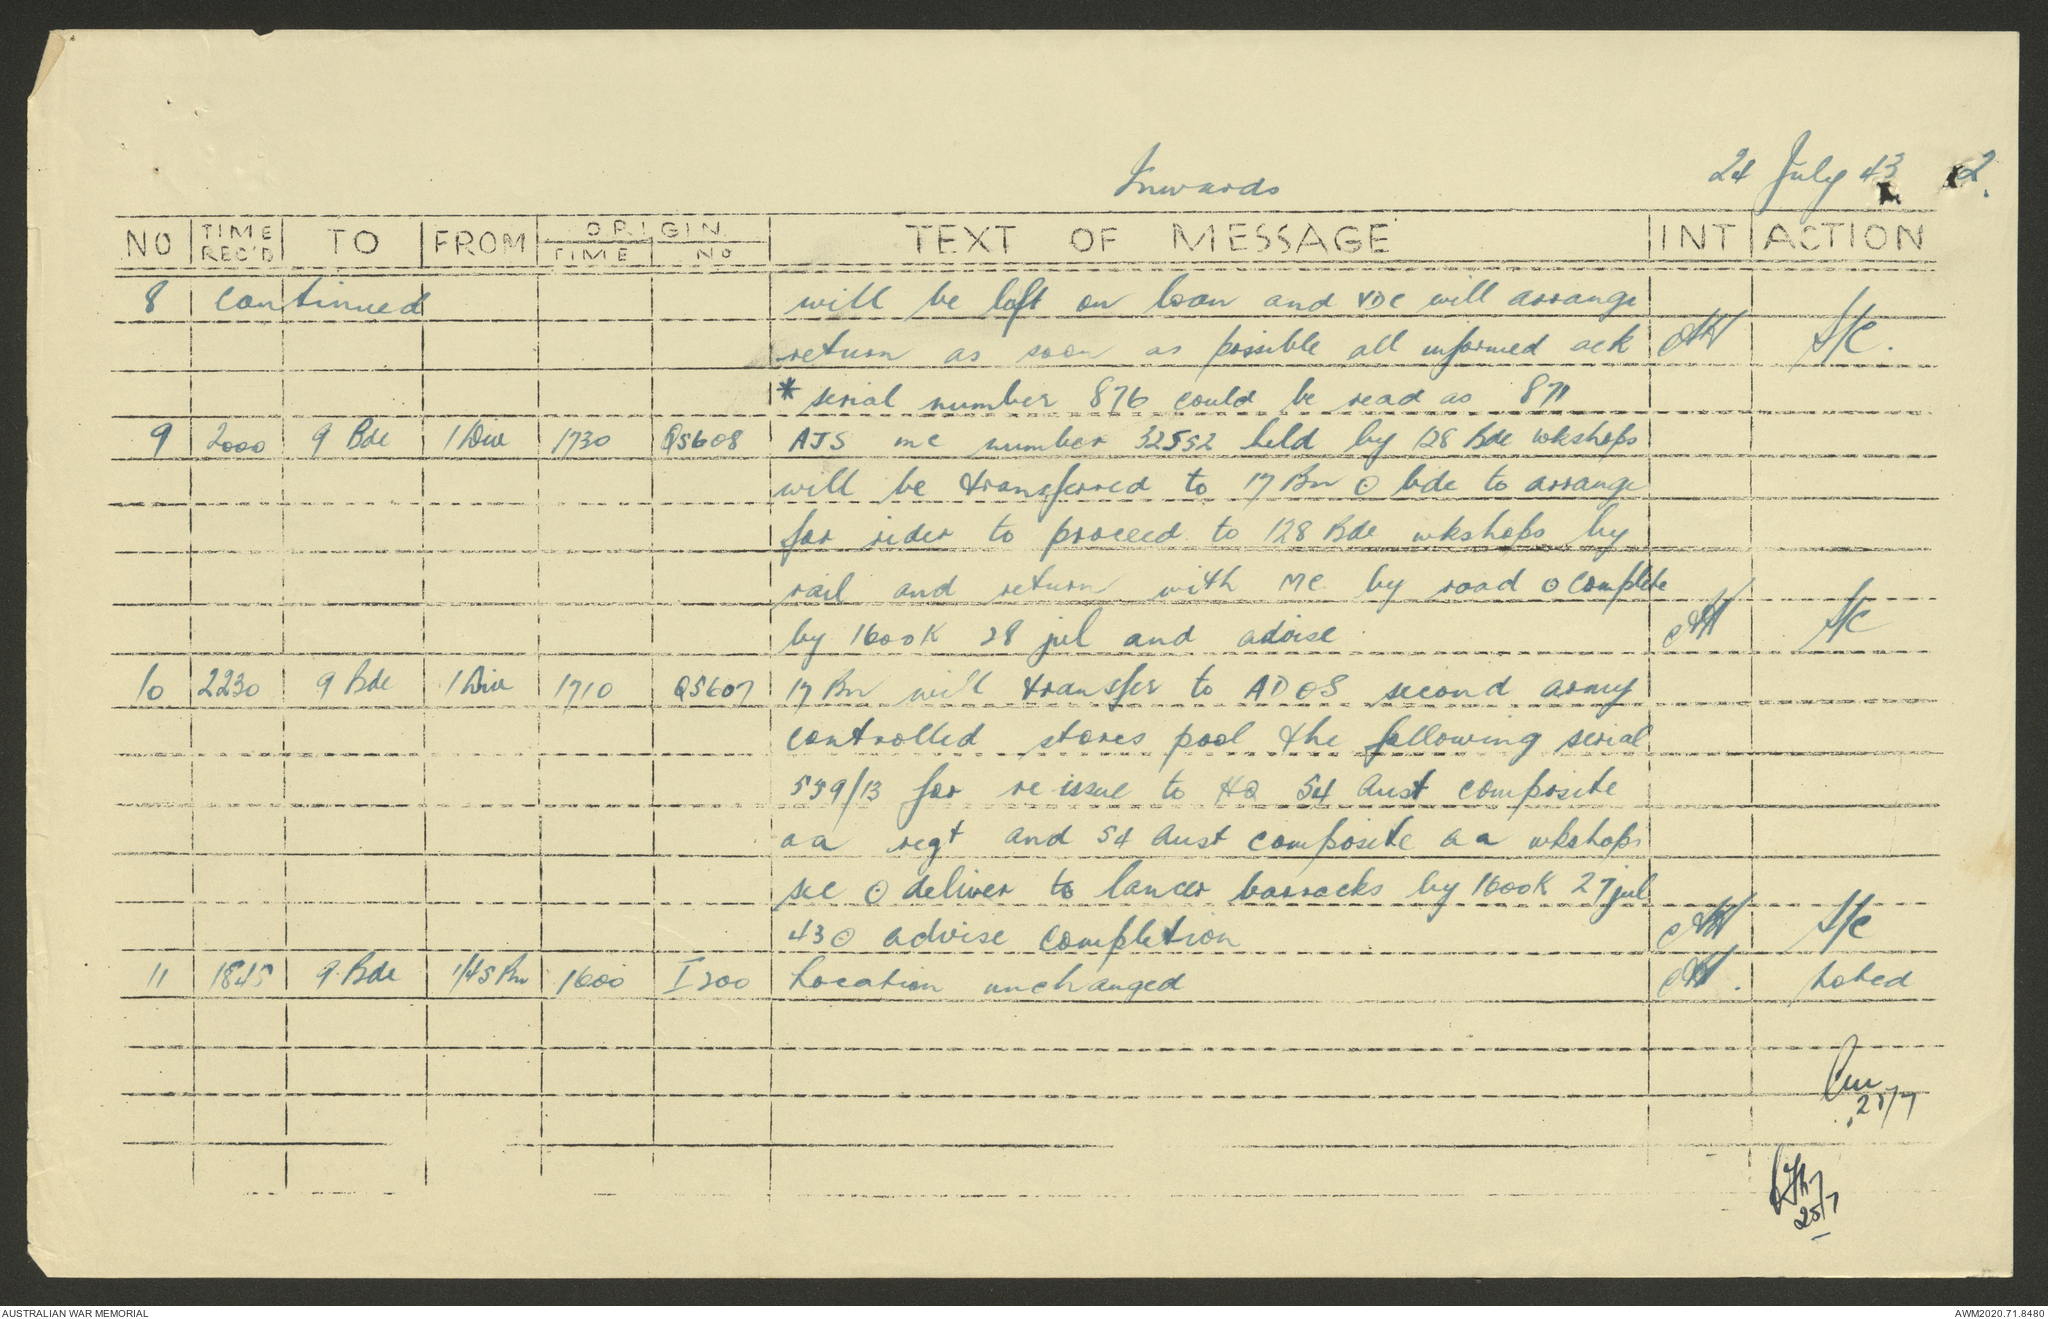 Inwards 24 July 43 2.
NO TIME REC'D TO FROM ORIGIN TIME NO TEXT OF MESSAGE INT ACTION
8 continued will be left on loan and VDC will arrange
return as soon as possible all informed ack S/C.
* serial number 876 could be read as 871
9 2000 9 Bde 1 Div 1730 QS608 AJS mc number 32552 held by 128 Bde wkshops
will be transferred to 17 Bn ⊙ bde to arrange
for rider to proceed to 128 Bde wkshops by
rail and return with MC by road ⊙ complete
by 1600K 28 jul and advise S/C
10 2230 9 Bde 1 Div 1710 QS607 17 Bn will transfer to ADOS second army
controlled stores pool the following serial
559/13 for re issue to HQ 54 Aust composite
aa regt and 54 Aust composite aa wkshops
sec ⊙ deliver to lancer barracks by 1600K 27 jul
43 ⊙ advise completion S/C
11 1845 9 Bde 1/45 Bn 1600 I200 Location unchanged Noted
25/7
25/7
AUSTRALIAN WAR MEMORIAL AWM2020.71.8480